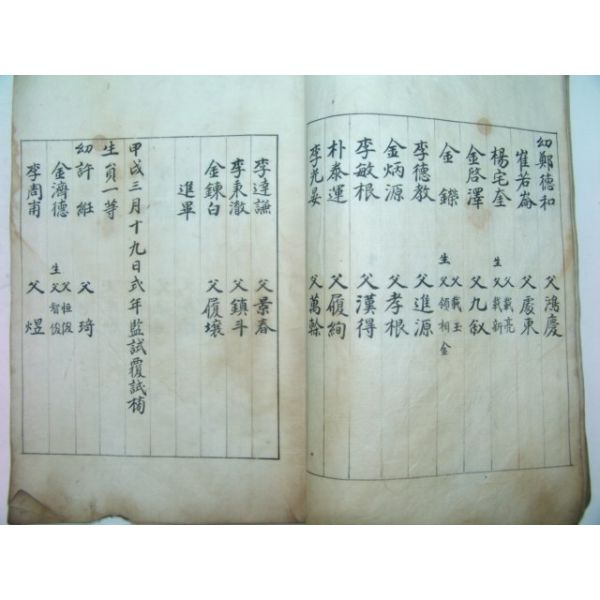 幼鄭德和 父鴻慶
崔若崙 父處東
楊宅奎 父載亮 生父載新
金啓澤 父九敘
金鑅 父載玉 生父領相金
李德教 父進源
金炳源 父孝根
李敏根 父漢得
朴泰運 父履絢
李光晏 父萬榦
李達謙 父景春
李東澈 父鎮斗
金鍊白 父履壤
進單
甲戌三月十九日式年監試覆試榜
生員一等
幼許鈺 父琦
金濟德 父恒 生父智
李周甫 父煜